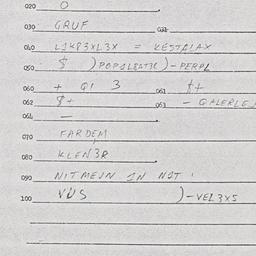 020 O
030 GRUF 031
040 L1KP3XL3X = KESTALAX
050 $ )POPULEAT3E)-PERPL
060 + Q1 3 061 $+
062 $+ 063 - GALERLE
064 -
070 FARDEM
080 KLEN3R
090 NITMEUN IN NOT'
100 VUS )-VEL3X5